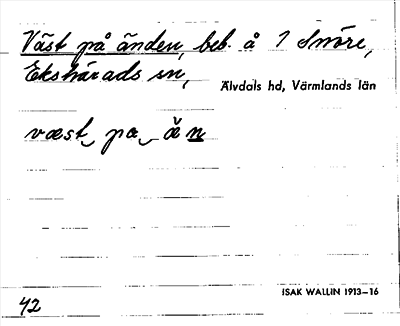 Väst på änden, beb. å 1 Snöre,
Ekshärads sn,
Älvdals hd, Värmlands län
væst pa än
ISAK WALLIN 1913–16
42